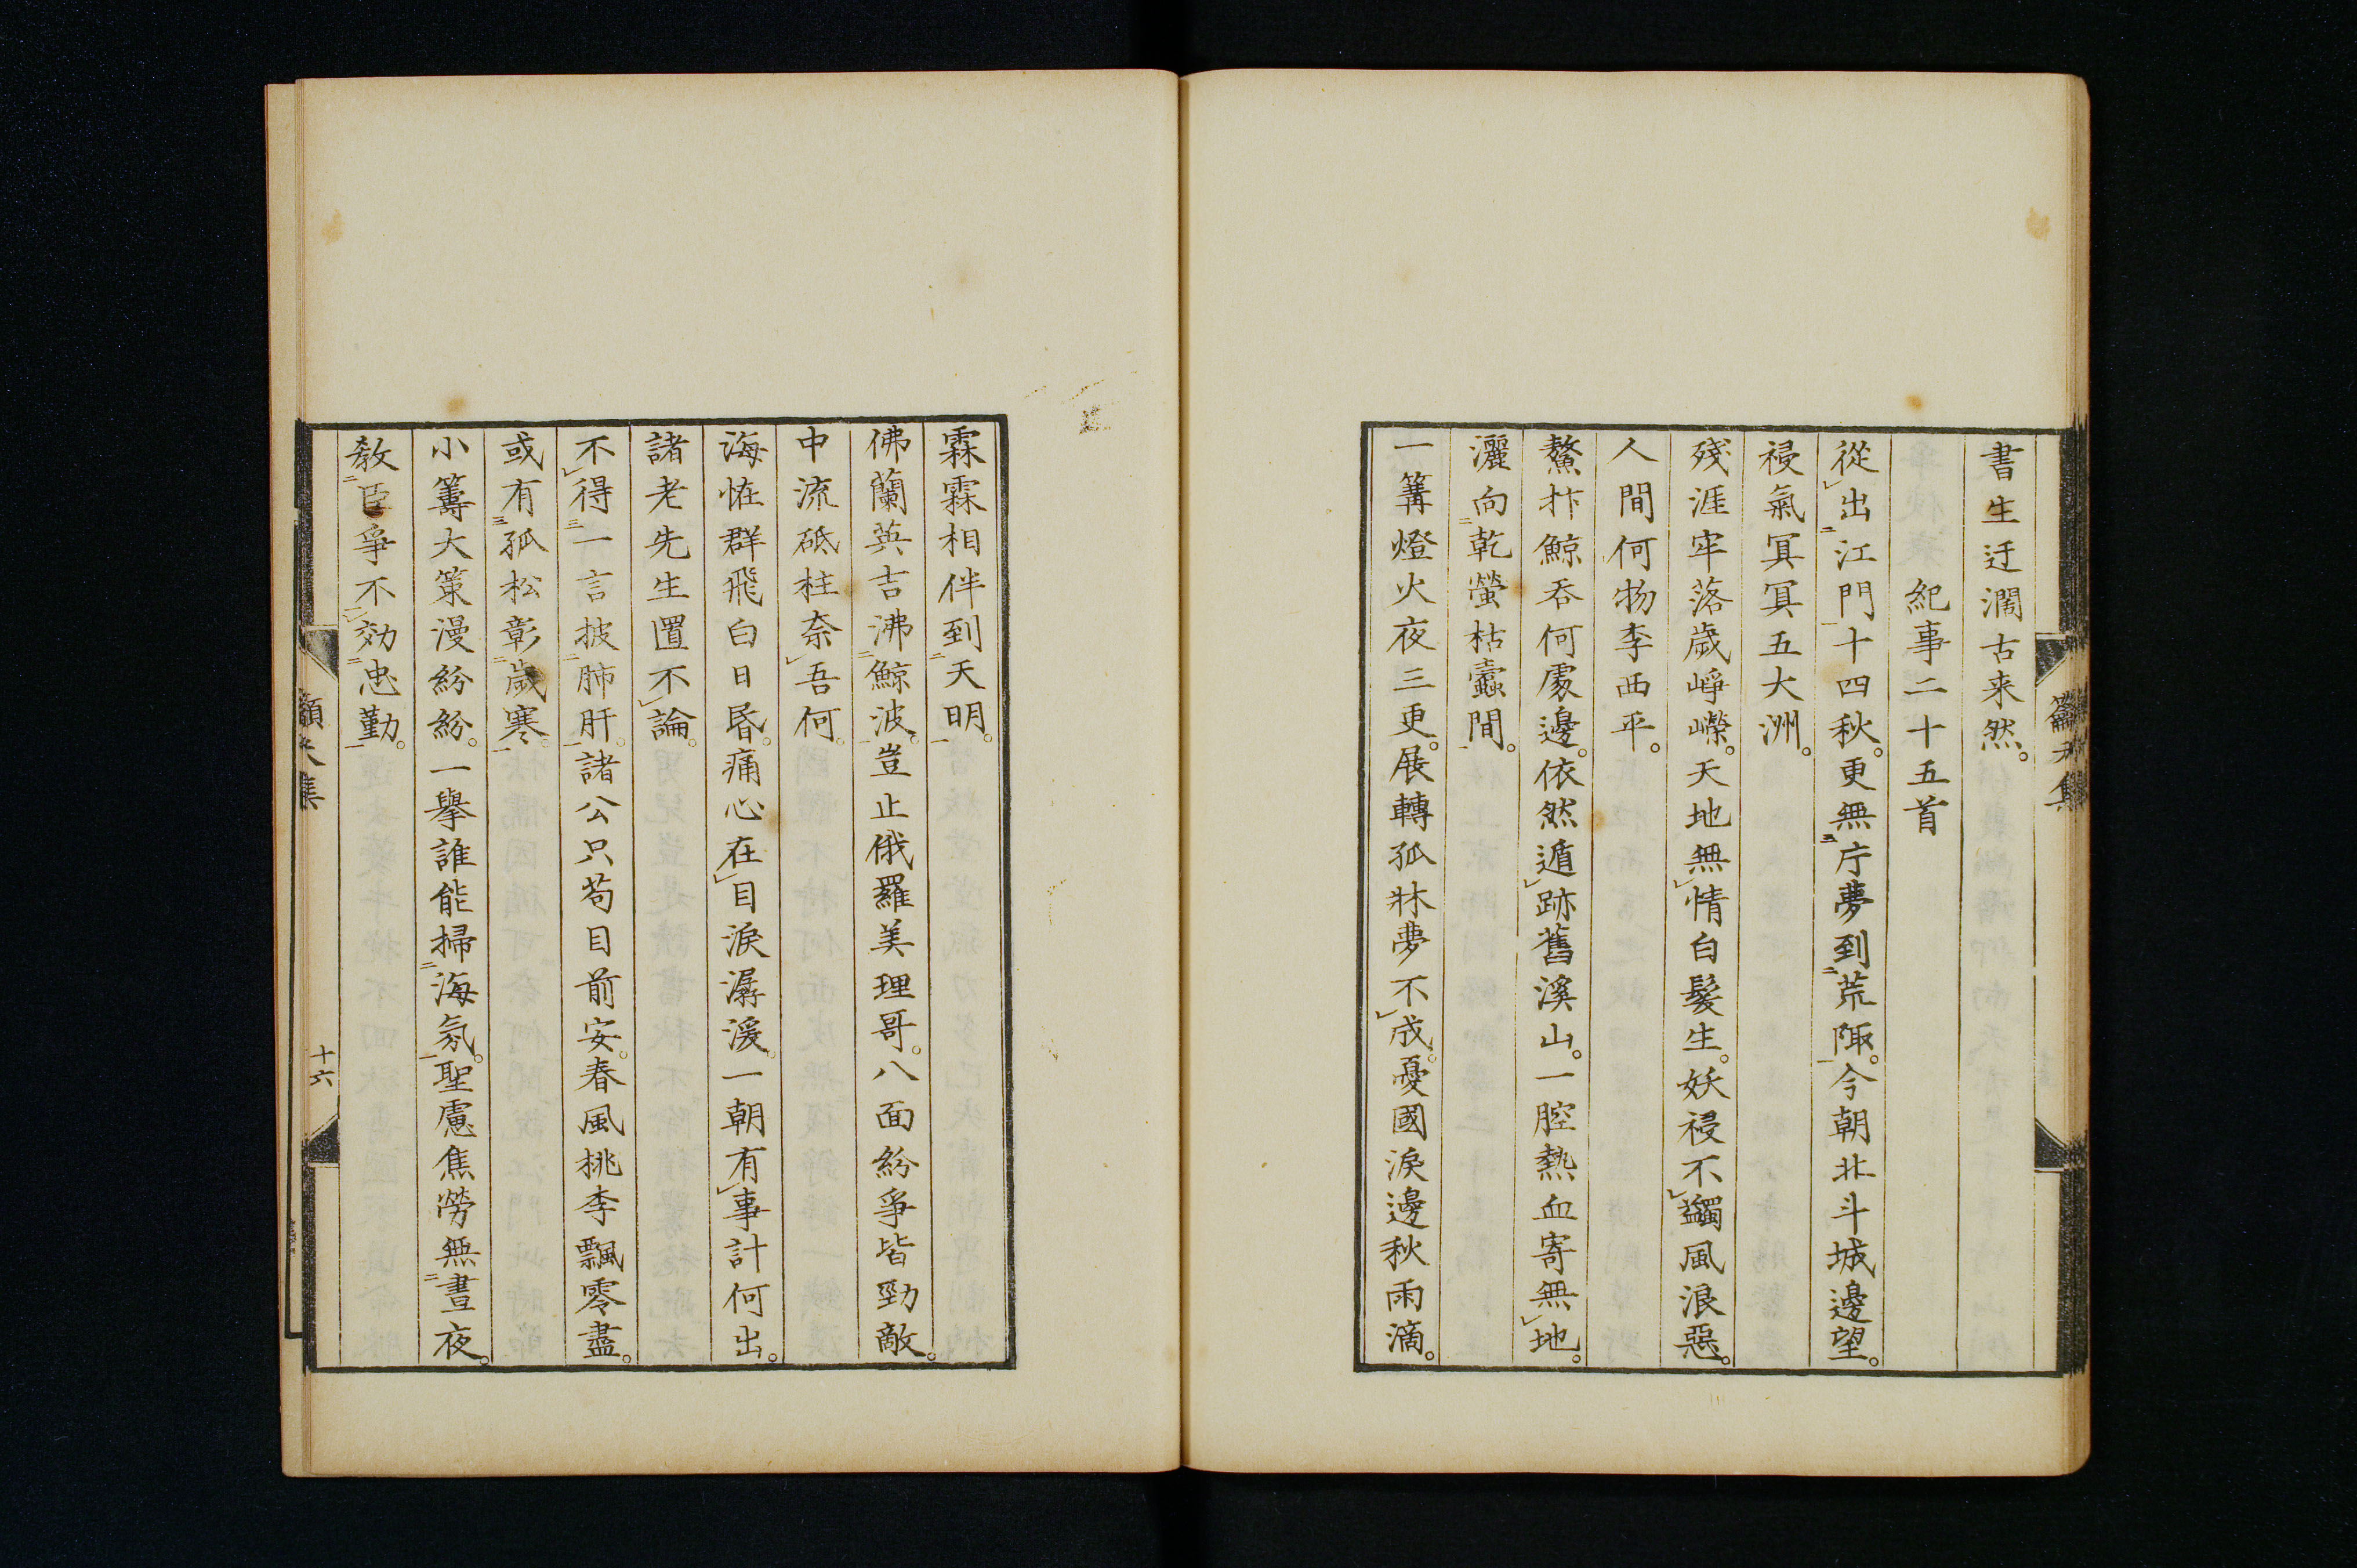 書生迂濶古来然。
紀事二十五首
從出江門十四秋。更無片夢到荒陬。今朝北斗城邊望。
祲氣冥冥五大洲。
殘涯牢落歲崢嶸。天地無情白髮生。妖祲不蠲風浪惡。
人間何物李西平。
鰲抃鯨吞何處邊。依然遁跡舊溪山。一腔熱血寄無地。
灑向乾螢枯蠹間。
一篝燈火夜三更。展轉孤牀夢不成。憂國淚邊秋雨滴。
霖霖相伴到天明。
佛蘭英吉沸鯨波。豈止俄羅美理哥。八面紛爭皆勁敵。
中流砥柱奈吾何。
海怪群飛白日昏。痛心在目淚潺湲。一朝有事計何出。
諸老先生置不論。
不得一言披肺肝。諸公只苟目前安。春風桃李飄零盡。
或有孤松彰歲寒。
小籌大策漫紛紛。一擧誰能掃海氛。聖慮焦勞無晝夜。
教臣爭不効忠勤。
十六